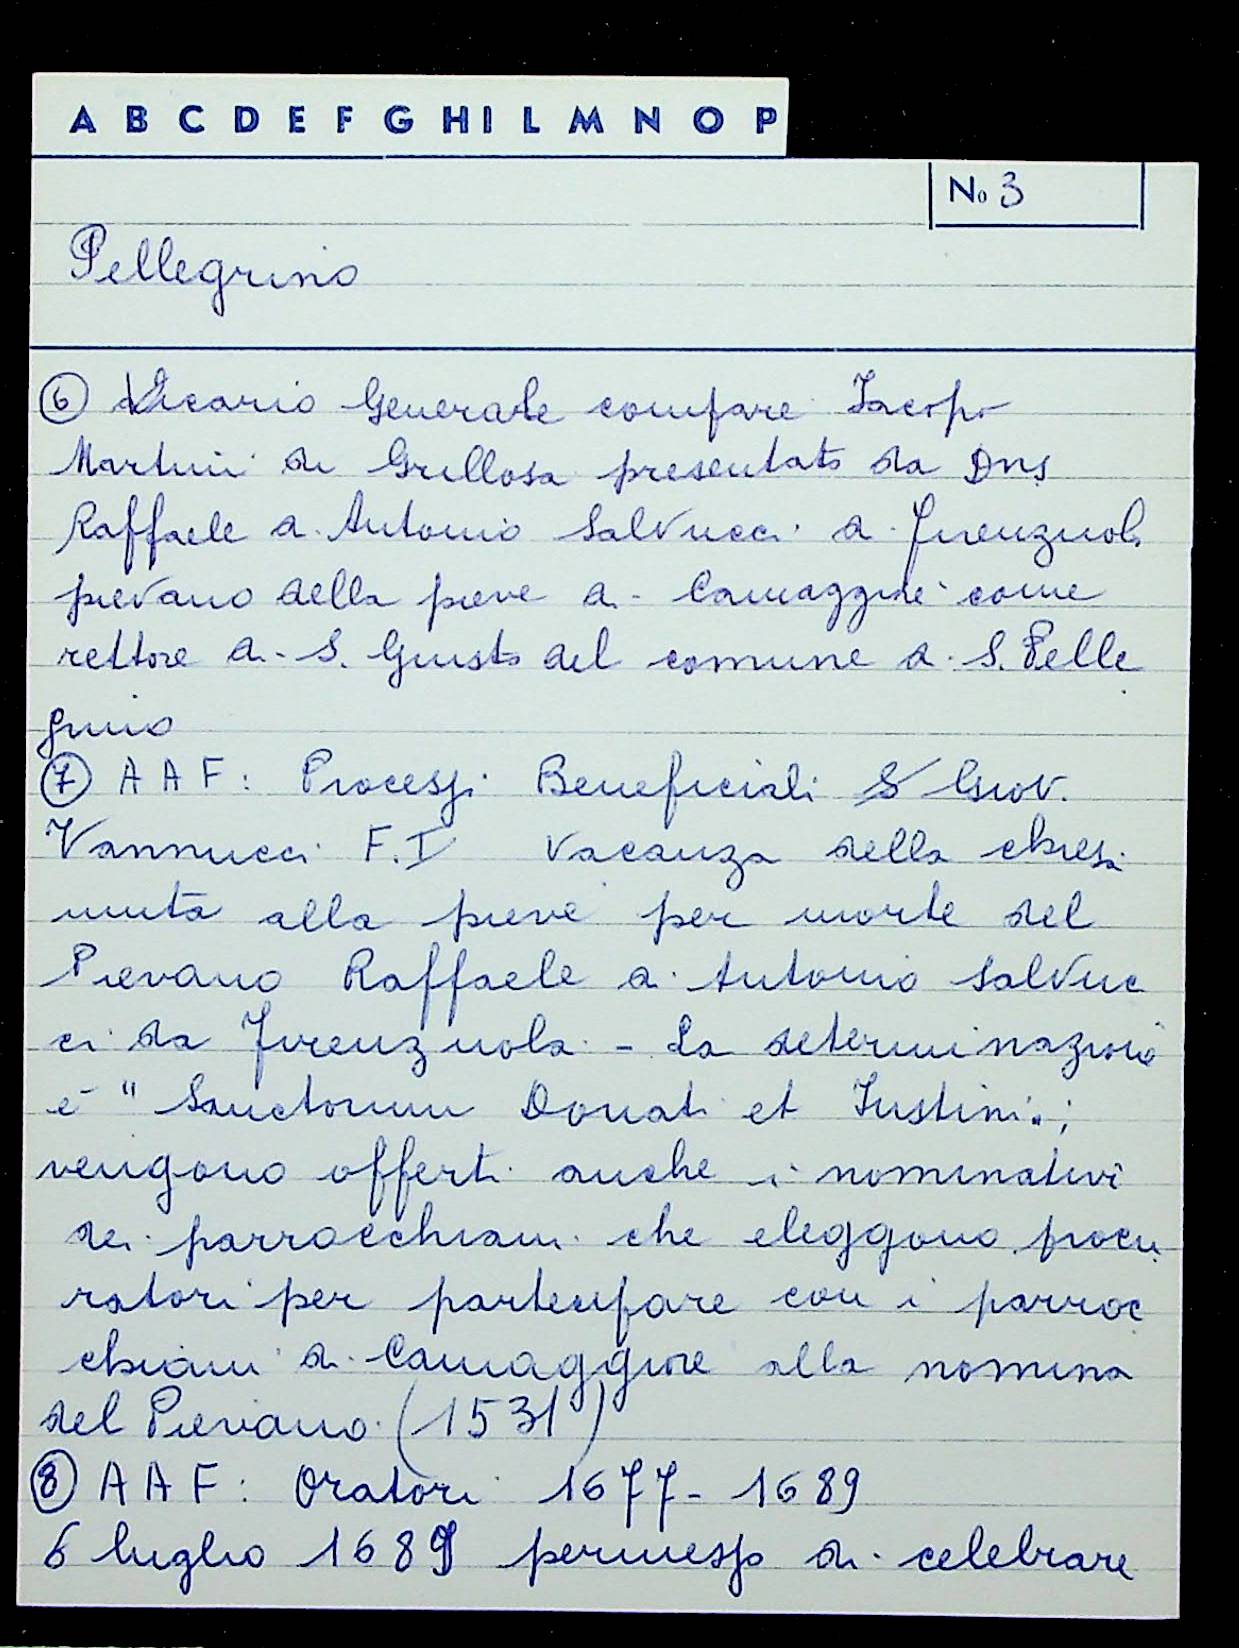 A B C D E F G H I L M N O P
No 3
Pellegrino
6 Vicario Generale compare Iacopo
Martini di Grillosa presentato da Dns
Raffaele di Antonio Salvucci di Firenzuola
pievano della pieve di Camaggiore come
rettore di S. Giusto del comune di S. Pelle
grino
7 A A F: Processi Beneficiali S Giov.
Vannucci F. I vacanza della chiesa
unita alla pieve per morte del
Pievano Raffaele di Antonio Salvuc
ci da Firenzuola - La determinazione
è " Sanctorum Donati et Iustini;
vengono offerti anche i nominativi
dei parrocchiani che eleggono procu
ratori per partecipare con i parroc
chiani di Camaggiore alla nomina
del Pievano. (1531)
8 A A F: Oratori 1677 - 1689
6 luglio 1689 permesso di celebrare